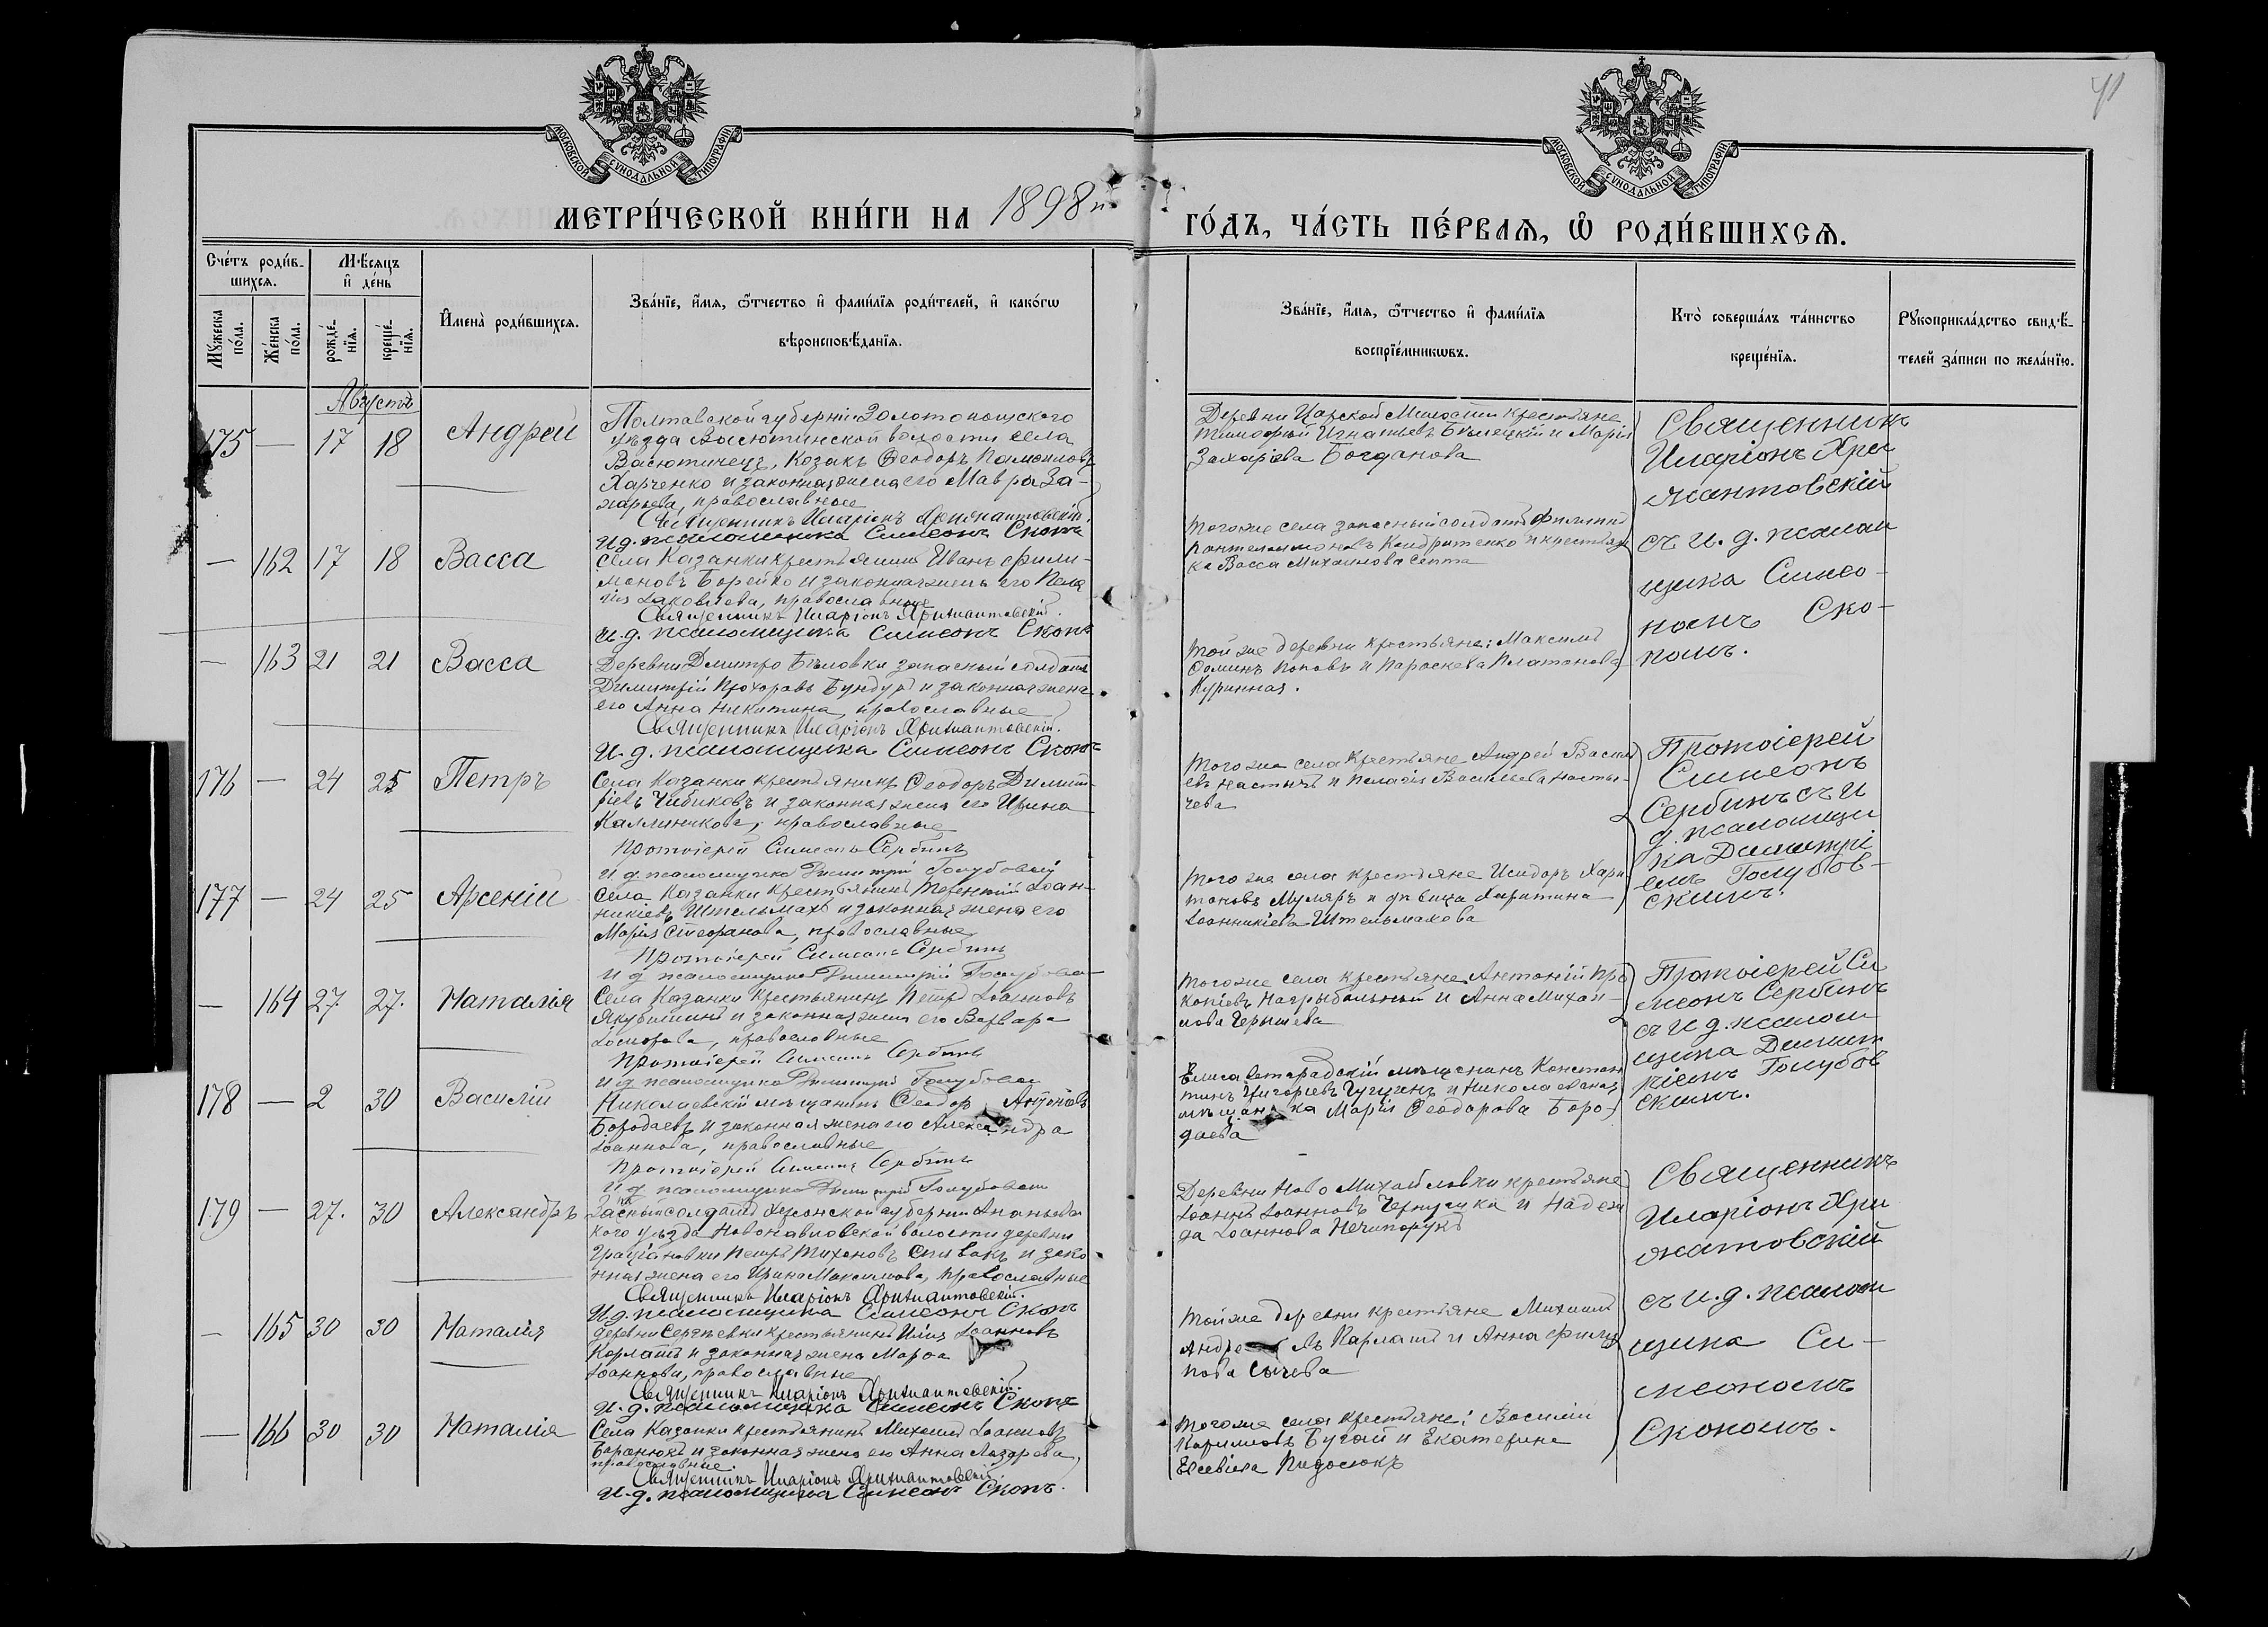 41
МОСКОВСКОЙ СѴНОДАЛЬНОЙ ТИПОГРАФІИ
МОСКОВСКОЙ СѴНОДАЛЬНОЙ ТИПОГРАФІИ
МЕТРИ́ЧЕСКОЙ КНИ́ГИ НА 1898 й
ГО́ДЪ, ЧА́СТЬ ПЕ́РВАѦ, Ѽ РОДИ́ВШИХСѦ.
Сче́тъ роди́в-
шихсѧ.
Мꙋ́жеска по́ла.
Же́нска по́ла.
Мѣ́сяцъ
и҆ де́нь
рожде́-
нїѧ.
креще́-
нїѧ.
И҆мена̀ роди́вшихсѧ.
Зва́нїе, и҆́мѧ, ѻ҆́тчество и҆ фами́лїѧ роди́телей, и҆ како́гѡ
вѣроисповѣ́данїѧ.
Зва́нїе, и҆́мѧ, ѻ҆́тчество и҆ фами́лїѧ
воспрїе́мникѡвъ.
Кто̀ соверша́лъ та́инство
креще́нїѧ.
Рꙋкоприкла́дство свидѣ́-
телей за́писи по жела́нїю.
Августъ
175 — 17 18 Андрей
Полтавской губерніи Золотоношского
уѣзда Васютинской волости села
Васютинецъ, Козакъ Ѳеодоръ
Харченко и законная жена его Мавра За-
харьева, православные
Священникъ Иларіонъ Хрижантовскій.
И.д. псаломщика Симеонъ Скопъ
Деревни Царской Милости крестьяне
Тимофей Игнатьевъ Бѣлецкій и Марія
Захаріева Богданова
Священникъ
Иларіонъ Хри
жантовскій
съ и. д. псалом
щика Симео-
номъ Ско-
помъ.
— 162 17 18 Васса
Села Казанки крестьянинъ Иванъ Фили-
моновъ Борейко и законная жена его Пела
гія Іаковлева, православные
Священникъ Иларіонъ Хрижантовскій.
и.д. псаломщика Симеонъ Скопъ
Того же села запасный солдатъ Филиппъ
Пантелеимоновъ Кондратенко и крестьян
ка Васса Михаилова Септа
— 163 21 21 Васса
Деревни Дмитро Бѣловки запасный солдатъ
Димитрій Прохоровъ Бундур и законная жена
его Анна Никитина, православные
Священникъ Иларіонъ Хрижантовскій.
И.д. псаломщика Симеонъ Скопъ
Той же деревни крестьяне: Максимъ
Семинъ Поповъ и Параскева Платонова
Куринная.
176 — 24 25 Петръ
Села Казанки крестьянинъ Ѳеодоръ Димит-
ріевъ Чибиковъ и законная жена его Ирина
Каллиникова, православные
Протоіерей Симеонъ Сербинъ
И д. псаломщика Димитрій Голубовскій
Того же села крестьяне Андрей Василі
евъ Настычъ и Пелагія Васильева Насты-
чева
Протоіерей
Симеонъ
Сербинъ съ и
д. псаломщи
ка Димитрі
емъ Голубов-
скимъ.
177 — 24 25 Арсеній
Села Казанки крестьянинъ Терентій Іоан-
никіевъ Штельмахъ и законная жена его
Марія Стефанова, православные
Протоіерей Симеонъ Сербинъ
И д псаломщика Димитрій Голубовскій
Того же села крестьяне Исидоръ Хари
тоновъ Муляръ и дѣвица Харитина
Іоанникіева Штельмахова
— 164 27. 27. Наталія
Села Казанки крестьянинъ Петръ Іоанновъ
Якубишинъ и законная жена его Варвара
православные
Протоіерей Симеонъ Сербинъ
И д псаломщика Димитрій Голубовскій
Того же села крестьяне Антоній Про
копіевъ Нагрыбальный и Анна Михаи-
лова Чернышева
Протоіерей Си
меонъ Сербинъ
съ и д. псалом
щика Димит
ріемъ Голубов
скимъ.
178 — 2 30 Василій
Николаевскій мѣщанинъ Ѳеодор Антоновъ
Бородаевъ и законная жена его Александра
Іоаннова, православные
Протоіерей Симеонъ Сербинъ
И д псаломщика Димитрій Голубовскій
Елисаветградскій мѣщанинъ Констан
тинъ Григоріевъ Чугунъ и Николаевская
мѣщанка Марія Ѳеодорова Боро-
даева
179 — 27. 30 Александръ
Запасный солдатъ Херсонской губерніи Ананьевс
кого уѣзда Новопавловской волости деревни
Граціановки Петръ Тихоновъ Спивакъ и зако
нная жена его Ирина Максимова, православные
Священникъ Иларіонъ Хрижантовскій.
И.д. псаломщика Симеонъ Скопъ
Деревни Ново Михайловки крестьяне
Іоаннъ Іоанновъ Чернушка и Надеж
да Іоаннова Нечипорукъ
Священникъ
Иларіонъ Хри
жатовскій
съ и. д. псалом
щика Си-
меономъ
Скопомъ.
— 165 30 30 Наталія
деревни Сергѣевки крестьянинъ Илія Іоанновъ
Карлашъ и законная жена Марѳа
Іоаннова, православные
Священникъ Иларіонъ Хрижантовскій.
и.д. псаломщика Симеонъ Скопъ
Той же деревни крестьяне Михаилъ
Андреевъ Карлашъ и Анна Филип
пова Сычева
— 166 30 30 Наталія
Села Казанки крестьянинъ Михаилъ Іоанновъ
Баранюкъ и законная жена его Анна Лазарева,
православные.
Священникъ Иларіонъ Хрижантовскій
И.д. псаломщика Симеонъ Скопъ.
Того же села крестьяне: Василій
Бугай и Екатерина
Евсевіева Пидосюкъ